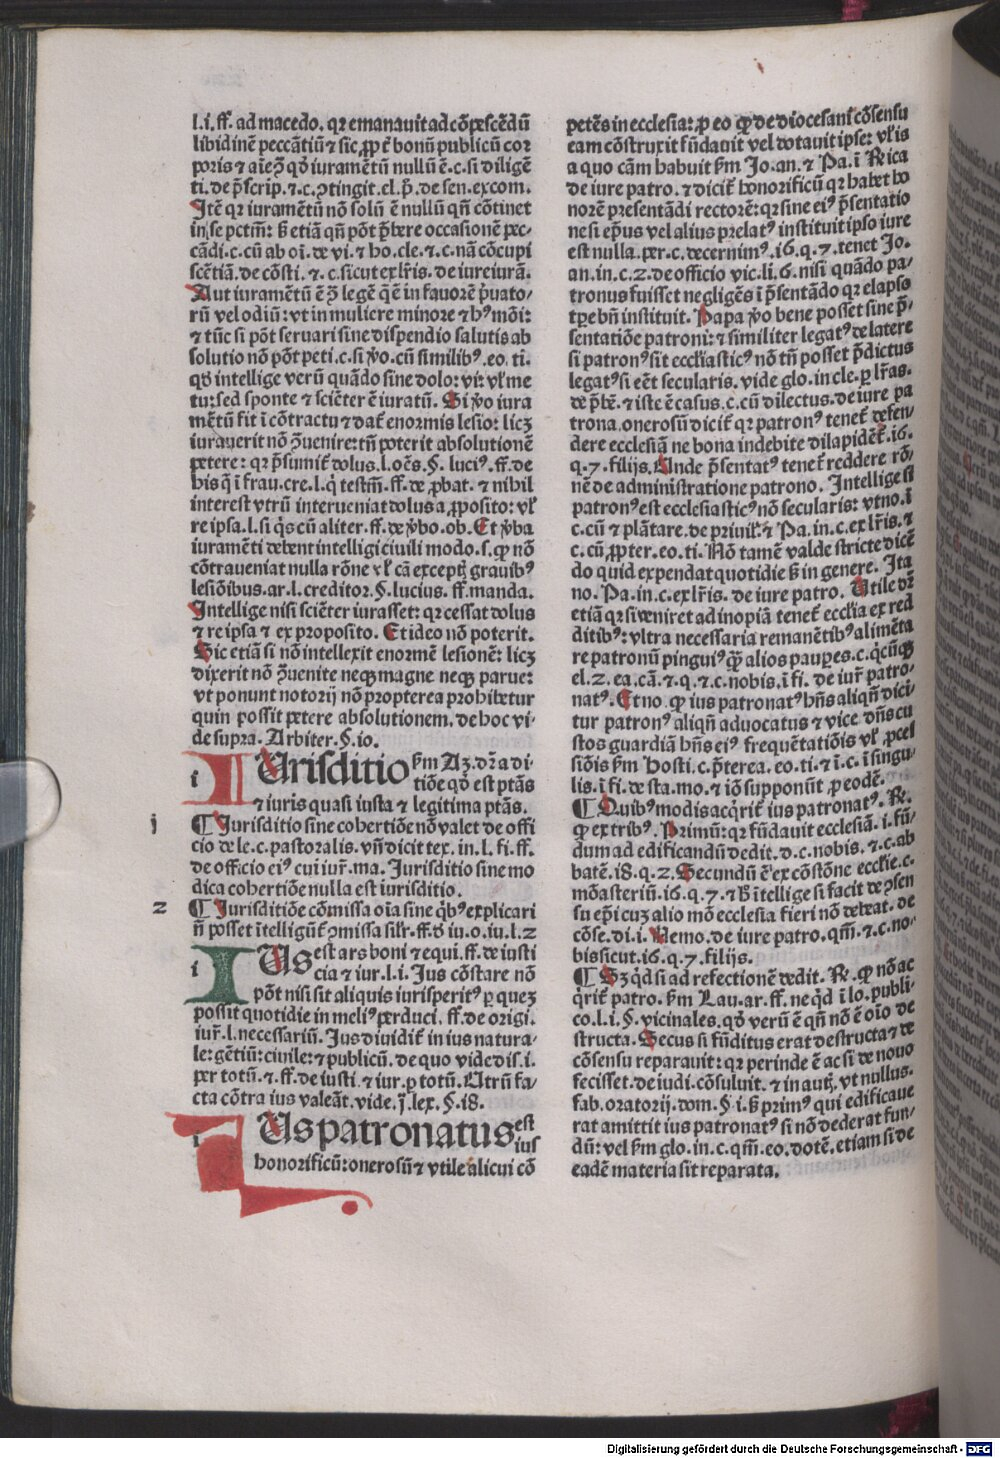 l.i.ff. ad macedo. qꝛ emanauit ad cõpescẽdũ
libidinẽ peccãtiũ ⁊ sic ꝓpt̃ bonũ publicũ cor
poris ⁊ aĩeꝫ qď iuramẽtũ nullũ ẽ.c. si diligẽ
ti. de p̃scrip. ⁊.c. ꝯtingit. el. p̃. de sen. excom.
Itẽ qꝛ iuramẽtũ nõ solũ ẽ nullũ qñ cõtinet
in se pctm̃: ß etiã qñ põt p̃bere occasionẽ pec-
cãdi. c. cũ ab oĩ. de vi. ⁊ ho. cle. ⁊.c. nã cõcupi
scẽtiã. de cõsti. ⁊.c. sicut ex lr̃is. de iureiurã.
Aut iuramẽtũ ẽ ꝯ̃ legẽ q̃ ẽ in fauorẽ p̃uato-
rũ vel odiũ: vt in muliere minore ⁊ hꝰ mõi:
⁊ tũc si põt seruari sine dispendio salutis ab
solutio nõ põt peti. c. si ṽo. cũ similibꝰ. eo. ti.
qď intellige verũ quãdo sine dolo: vi: vł me
tu: sed sponte ⁊ sciẽter ẽ iuratũ. Si ṽo iura
mẽtũ fit ĩ cõtractu ⁊ dat̃ enormis lesio: licꝫ
iurauerit nõ ꝯ̃uenire: tñ poterit absolutionẽ
petere: qꝛ p̃sumit̃ dolus. l. oẽs. §. luciꝰ. ff. de
his q̃ ĩ frau. cre. l. q̃ testm̃. ff. de ꝓbat. ⁊ nihil
interest vtrũ interueniat dolus a ꝓposito: vł
re ipsa. l. si q̃s cũ aliter. ff. de ṽbo. ob. Et ṽba
iuramẽti debent intelligi ciuili modo. s. ꝙ nõ
cõtraueniat nulla rõne vł cã exceptꝭ grauibꝰ
lesiõibus. ar. l. creditor. §. lucius. ff. manda.
Intellige nisi sciẽter iurasset: qꝛ cessat dolus
⁊ re ipsa ⁊ ex proposito. Et ideo nõ poterit.
Sic etiã si nõ intellexit enormẽ lesionẽ: licꝫ
dixerit nõ ꝯ̃uenite neqꝫ magne neqꝫ parue:
vt ponunt notorij nõ propterea prohibetur
quin possit petere absolutionem. de hoc vi-
de supra. Arbiter. §. io.
i IUrisditio s̃m Az. dr̃ a di-
tiõe qď est ptãs
⁊ iuris quasi iusta ⁊ legitima ptãs.
i ¶ Jurisditio sine cohertiõe nõ valet de offi
cio de le. c. pastoralis. vñ dicit tex. in. l. fi. ff.
de officio eiꝰ cui iur̃. ma. Jurisditio sine mo
dica cohertiõe nulla est iurisditio.
2 ¶ Jurisditiõe cõmissa oĩa sine q̃bꝰ explicari
ñ posset ĩtelligũt̃ ꝯmissa sil̃r. ff. ď iu. o. iu. l. 2
i IUs est ars boni ⁊ equi. ff. de iusti
cia ⁊ iur. l. i. Jus cõstare nõ
põt nisi sit aliquis iurisperitꝰ ꝑ quez
possit quotidie in meliꝰ perduci. ff. de origi.
iur̃. l. necessariũ. Jus diuidit̃ in ius natura-
le: gẽtiũ: ciuile: ⁊ publicũ. de quo vide dis. i.
per totũ. ⁊. ff. de iusti. ⁊ iur. ꝑ totũ. Utrũ fa-
cta cõtra ius valeãt. vide. j̃. lex. §. i8.
i IUs patronatus est
ius
honorificũ: onerosũ ⁊ vtile alicui cõ
petẽs in ecclesia: ꝓ eo ꝙ de diocesani cõsensu
eam cõstruxit fũdauit vel dotauit ipse: vł is
a quo cãm habuit s̃m Jo. an. ⁊ Pa. ĩ Rica
de iure patro. ⁊ dicit̃ honorificũ qꝛ habet ho
norẽ presentãdi rectorẽ: qꝛ sine eiꝰ p̃sentatio
ne si ep̃us vel alius prelatꝰ instituit ipso iure
est nulla. per. c. decernimꝰ. i6. q. 7. tenet Jo.
an. in. c. 2. de officio vic. li. 6. nisi quãdo pa-
tronus fuisset negligẽs ĩ p̃sentãdo qꝛ elapso
tp̃e bñ instituit. Papa ṽo bene posset sine p̃-
sentatiõe patroni: ⁊ similiter legatꝰ de latere
si patronꝰ sit eccłiasticꝰ nõ tñ posset p̃dictus
legatꝰ si eẽt secularis. vide glo. in cle. ꝑ lr̃as.
de p̃bẽ. ⁊ iste ẽ casus. c. cũ dilectus. de iure pa
trona. onerosũ dicit̃ qꝛ patronꝰ tenet̃ defen/
dere ecclesiã ne bona indebite dilapidẽt̃. i6.
q. 7. filijs. Unde p̃sentatꝰ tenet̃ reddere rõ-
nẽ de administratione patrono. Intellige si
patronꝰ est ecclesiasticꝰ nõ secularis: vt no. ĩ
c. cũ ⁊ plãtare. de priuil. ⁊ Pa. in. c. ex lr̃is. ⁊
c. cũ ꝓpter. eo. ti. Nõ tamẽ valde stricte dicẽ
do quid expendat quotidie ß in genere. Ita
no. Pa. in. c. ex lr̃is. de iure patro. Utile dr̃
etiã qꝛ si veniret ad inopiã tenet̃ eccłia ex red
ditibꝰ: vltra necessaria remanẽtibꝰ alimẽta
re patronũ pinguiꝰ q̃ꝫ alios pauꝑes. c. q̃cũqꝫ
el. 2. ea. cã. ⁊. q. ⁊. c. nobis. ĩ fi. de iur̃ patro-
natꝰ. Et no. ꝙ ius patronatꝰ hñs aliqñ dici
tur patronꝰ aliqñ aduocatus ⁊ vice dñs cu
stos guardiã hñs eiꝰ frequẽtatiõis vł ꝓcel
siõis s̃m Hosti. c. p̃terea. eo. ti. ⁊ ĩ. c. ĩ singu-
lis. ĩ fi. de sta. mo. ⁊ iõ supponũt ꝓ eodẽ.
¶ Quibꝰ modis acq̃rit̃ ius patronatꝰ. R̃.
ꝙ ex tribꝰ. Primũ: qꝛ fũdauit ecclesiã. i. fũ/
dum ad edificandũ dedit. d. c. nobis. ⁊. c. ab
batẽ. i8. q. 2. Secundũ ẽ ex cõstõne eccłie. c.
mõasteriũ. i6. q. 7. ⁊ ß ĩtellige si facit de ꝯsen
su ep̃i cuꝫ alio mõ ecclesia fieri nõ debeat. de
cõse. di. i. Nemo. de iure patro. qm̃. ⁊. c. no-
bis sicut. i6. q. 7. filijs.
¶ Sꝫ q̃d si ad refectionẽ dedit. R̃. ꝙ nõ ac
q̃rit̃ patro. s̃m Lau. ar. ff. ne q̃d ĩ lo. publi-
co. l. i. §. vicinales. qď verũ ẽ qñ nõ ẽ oĩo de
structa. Secus si fũditus erat destructa ⁊ de
cõsensu reparauit: qꝛ perinde ẽ ac si de nouo
fecisset. de iudi. cõsuluit. ⁊ in autꝫ. vt nullus.
fab. oratorij. dom. §. i. ß primꝰ qui edificaue
rat amittit ius patronatꝰ si nõ dederat fun-
dũ: vel s̃m glo. in. c. qm̃. eo. dotẽ. etiam si de
eadẽ materia sit reparata.
Digitalisierung gefördert durch die Deutsche Forschungsgemeinschaft - DFG